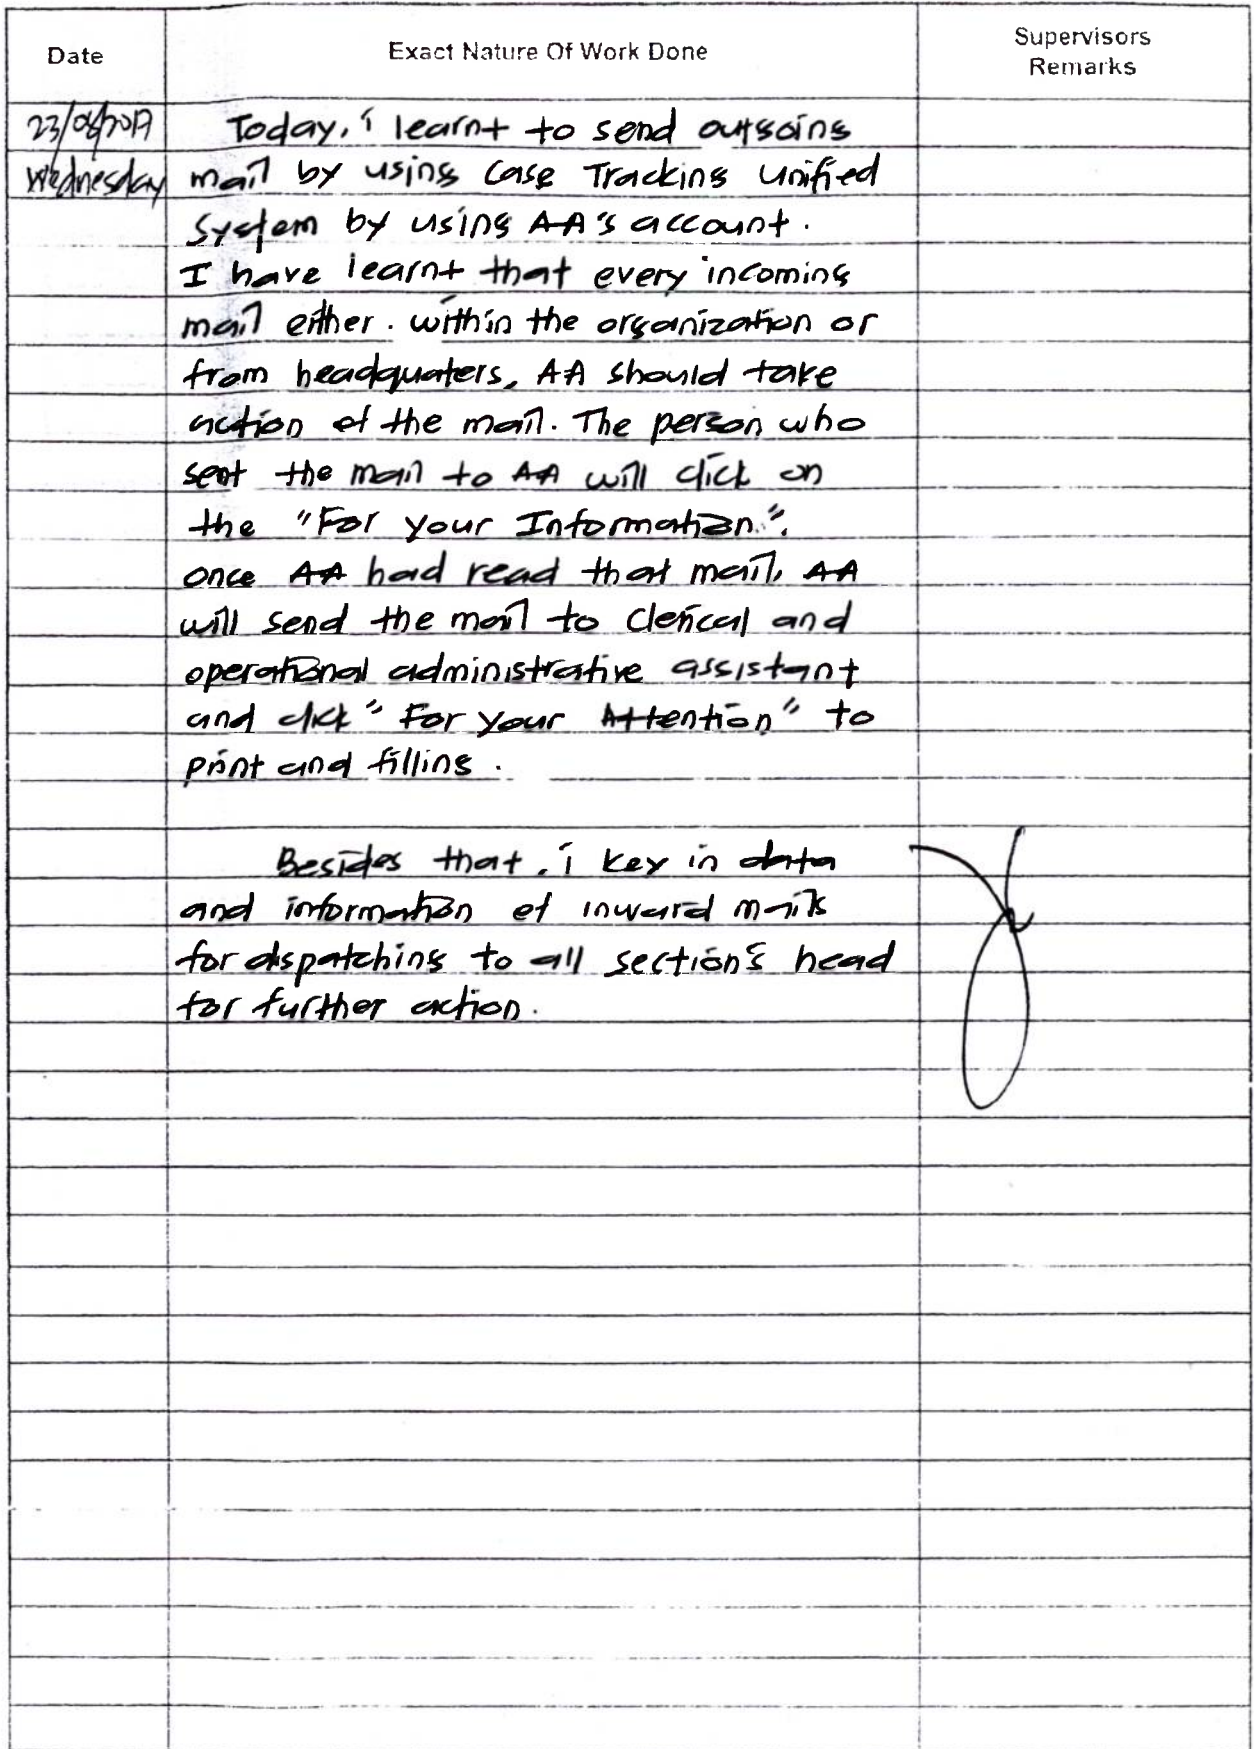 Date
Exact Nature Of Work Done
Supervisors
Remarks
23/08/2017
Today, i learnt to send outgoing
Wednesday
mail by using Case Tracking Unified
System by using AA's account.
I have learnt that every incoming
mail either. within the organization or
from headquaters, AA should take
action of the mail. The person who
sent the mail to AA will click on
the "For your Information".
once AA had read that mail, AA
will send the mail to Clerical and
operational administrative assistant
and click "For your Attention" to
print and filling.
Besides that, i key in data
and information of inward mails
for dispatching to all section's head
for further action.